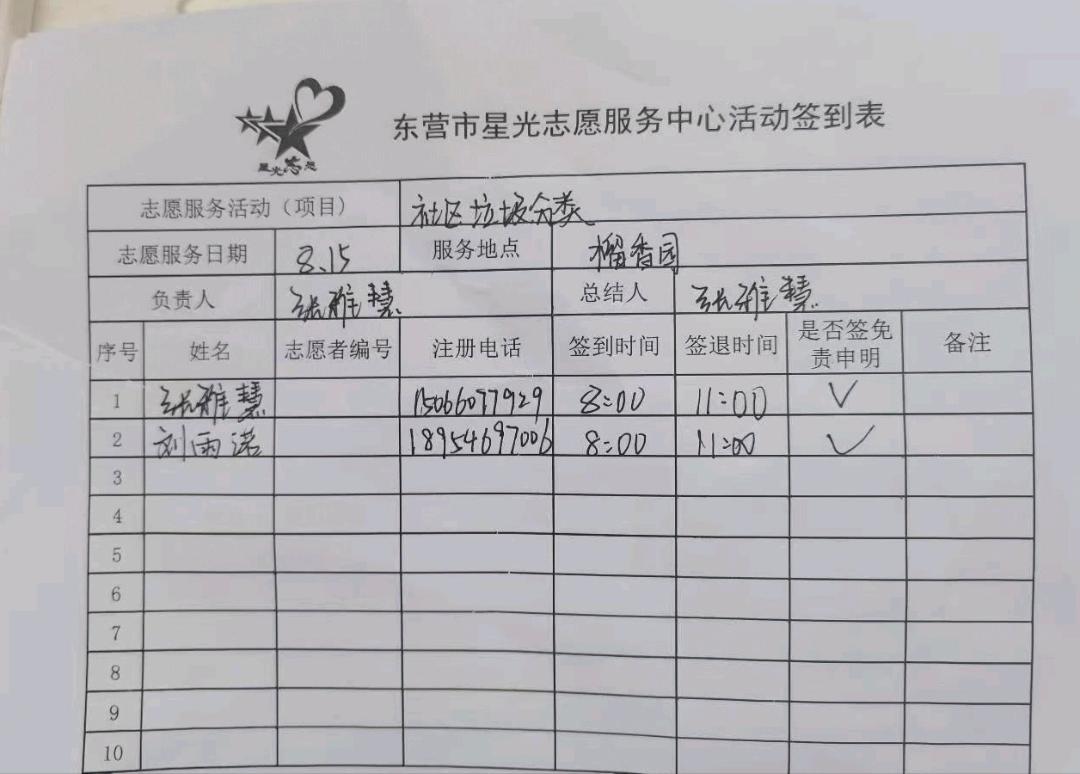 星光志愿
东营市星光志愿服务中心活动签到表
志愿服务活动（项目） 社区垃圾分类
志愿服务日期 8.15 服务地点 榴香园
负责人 张雅慧 总结人 张雅慧
序号 姓名 志愿者编号 注册电话 签到时间 签退时间 是否签免责申明 备注
1 张雅慧 15066077929 8:00 11:00 √
2 刘雨诺 18954697006 8:00 11:00 √
3
4
5
6
7
8
9
10